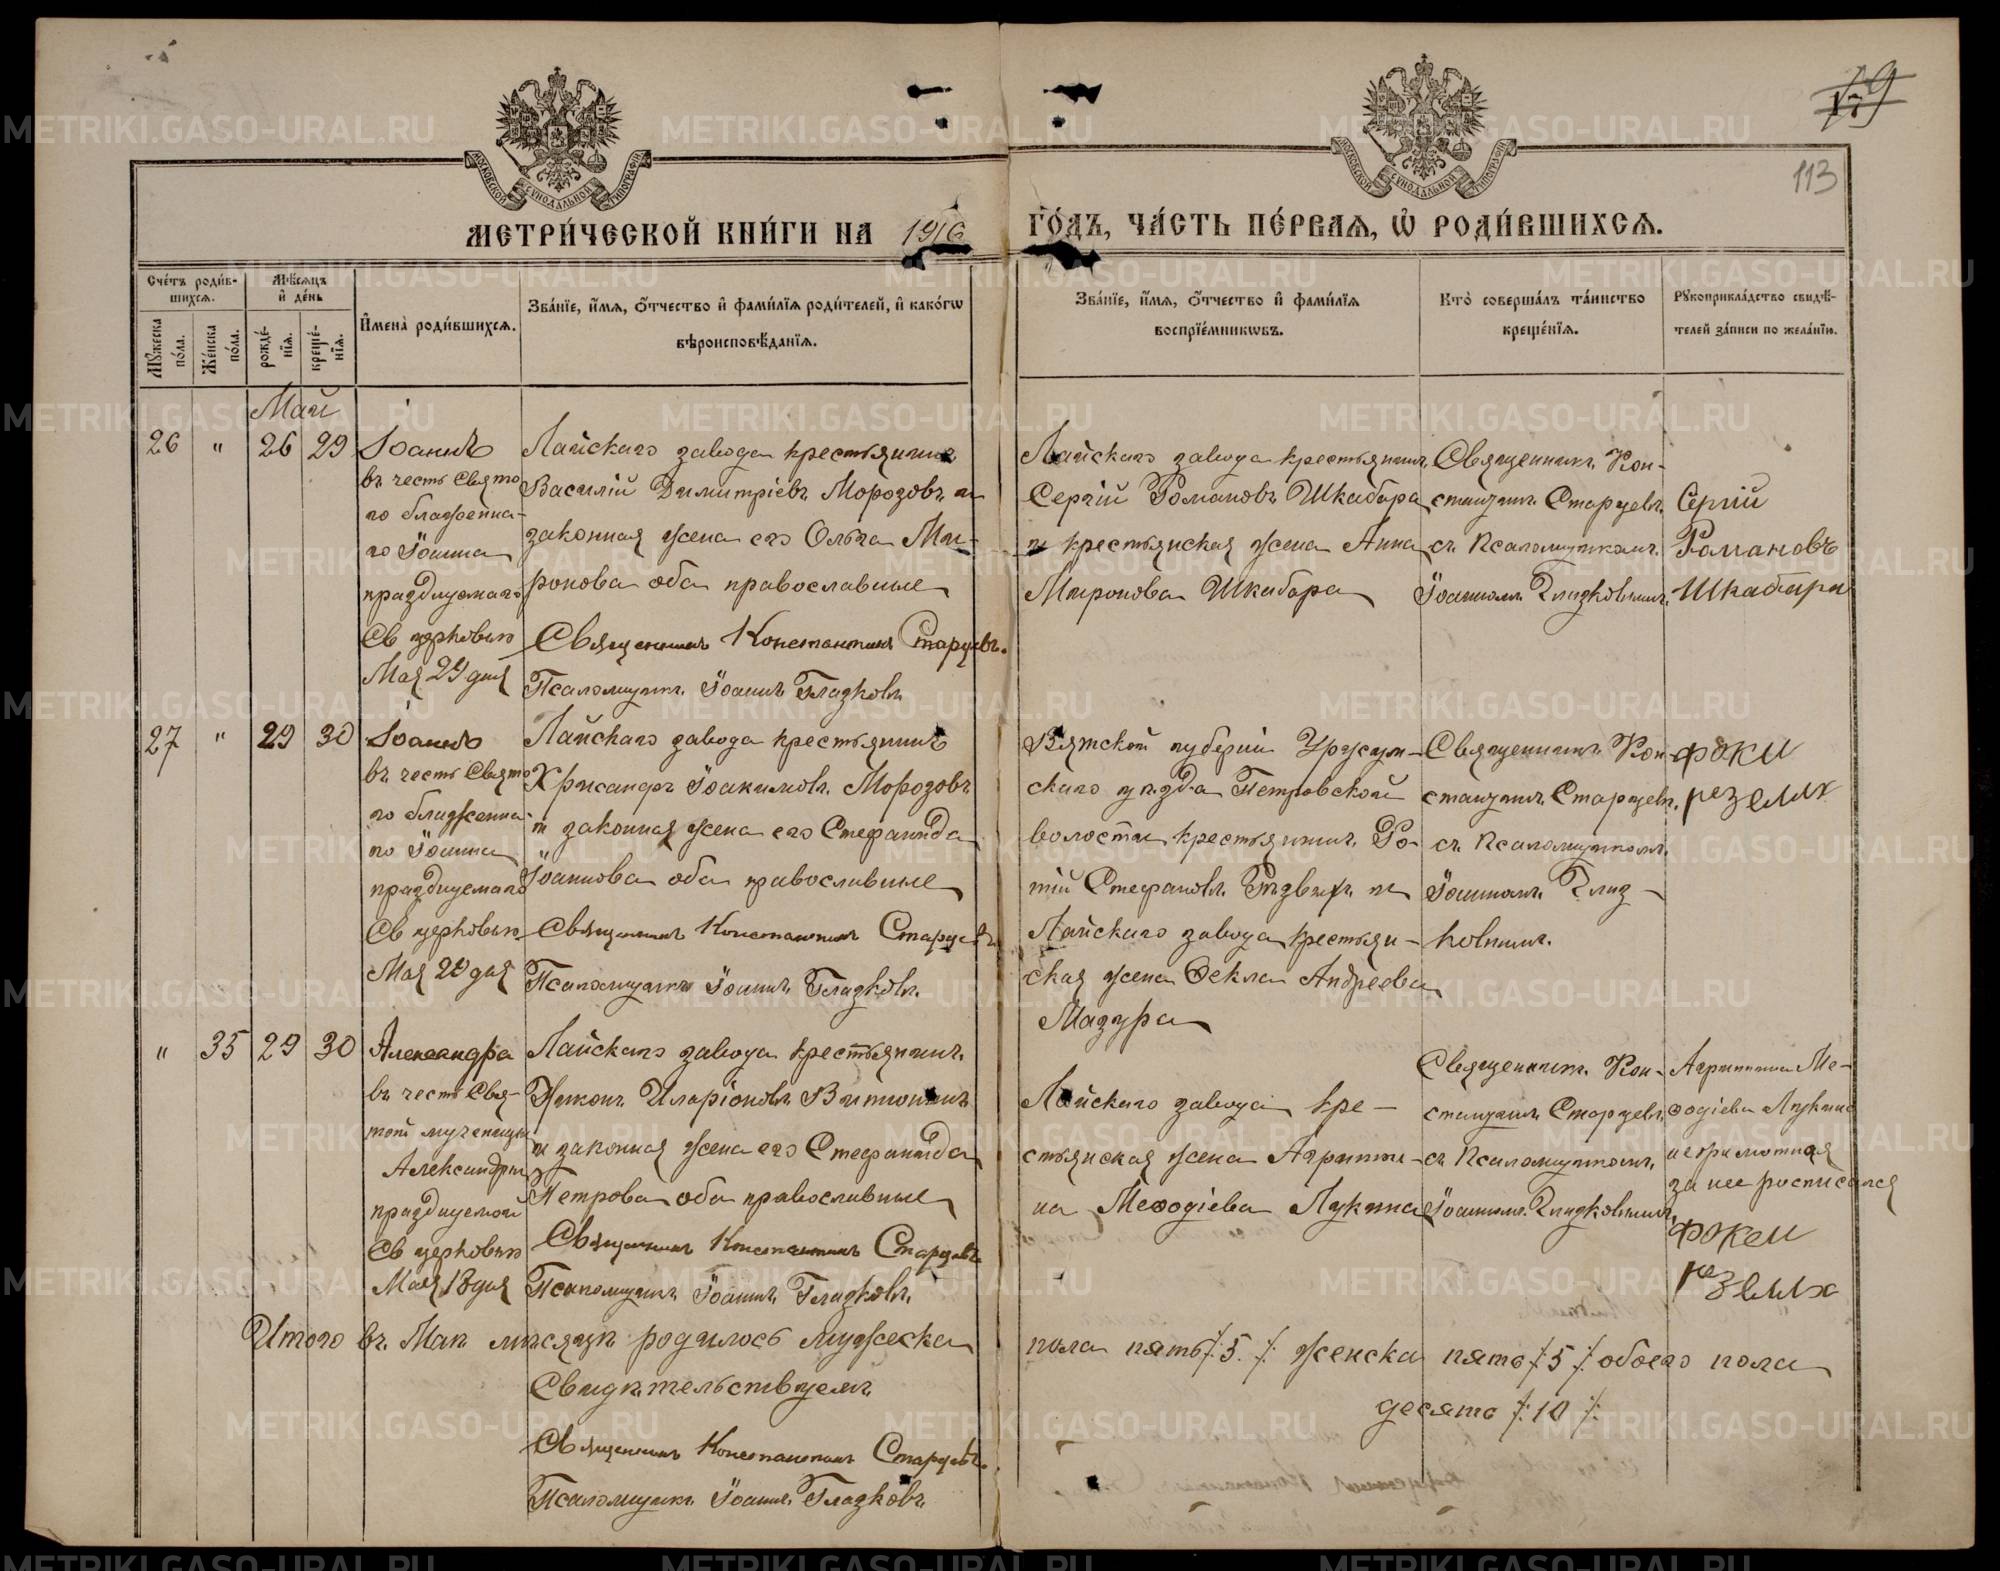 79
113
МЕТРИ́ЧЕСКОЙ КНИ́ГИ НА 1916 ГО́ДЪ, ЧА́СТЬ ПЕ́РВАѦ, Ѡ҆ РОДИ́ВШИХСѦ.
Сче́тъ роди́в-
шихсѧ.
Мꙋ́жеска по́ла.
Же́нска по́ла.
Мѣ́сѧцъ и҆ де́нь
рожде́-нїѧ.
креще́-нїѧ.
И҆мена̀ роди́вшихсѧ.
Зва́нїе, и҆́мѧ, ѻ҆́тчество и҆ фами́лїѧ роди́телей, и҆ како́гѡ
вѣроисповѣ́данїѧ.
Зва́нїе, и҆́мѧ, ѻ҆́тчество и҆ фами́лїѧ
воспрїе́мникѡвъ.
Кто̀ соверша́лъ та́инство
креще́нїѧ.
Рꙋкоприкла́дство свидѣ́-
телей за́писи по жела́нїю.
Май
26 " 26 29
Іоаннъ
въ честь Свято
го блаженна-
го Іоанна
празднуемаго
Св церковью
Мая 29 дня
Лайскаго завода крестьянинъ
Василій Димитріевъ Морозовъ и
законная жена его Ольга Ми-
ронова оба православные
Священникъ Константинъ Старцевъ.
Псаломщикъ Іоаннъ Гладковъ
Лайскаго завода крестьянинъ
Сергій Романовъ Шкабара
и крестьянская жена Анна
Миронова Шкабара
Священникъ Кон-
стантинъ Старцевъ
съ псаломщикомъ
Іоанномъ Гладковымъ.
Сергій
Романовъ
Шкабара
27 " 29 30
Іоаннъ
въ честь Свято
го блаженна-
го Іоанна
празднуемаго
Св церковью
Мая 29 дня
Лайскаго завода крестьянинъ
Хрисанфъ Іоакимовъ Морозовъ
и законная жена его Стефанида
Іоаннова оба православные
Священникъ Константинъ Старцевъ
Псаломщикъ Іоаннъ Гладковъ.
Вятской губерніи Уржум-
скаго уѣзда Петровской
волости крестьянинъ Фо-
тій Стефановъ и
Лайскаго завода крестьян-
ская жена Ѳекла Андреева
Мазура
Священникъ Кон-
стантинъ Старцевъ
съ псаломщикомъ
Іоанномъ Глад-
ковымъ.
" 35 29 30
Александра
въ честь Свя-
той мученицы
Александры
празднуемой
Св церковью
Мая 18 дня
Лайскаго завода крестьянинъ
Никонъ Иларіоновъ
и законная жена его Стефанида
Петрова оба православные
Священникъ Константинъ Старцевъ
Псаломщикъ Іоаннъ Гладковъ.
Лайскаго завода кре-
стьянская жена Агриппи-
на Меѳодіева Лукина
Священникъ Кон-
стантинъ Старцевъ
съ псаломщикомъ
Іоанномъ Гладковымъ.
Агриппина Ме-
ѳодіева Лукина
неграмотная
за нее росписался
Итого въ Маѣ мѣсяцѣ родилось мужеска пола пять /:5:/ женска пять /:5:/ обоего пола
десять /:10:/
Свидѣтельствуемъ
Священникъ Константинъ Старцевъ.
Псаломщикъ Іоаннъ Гладковъ
METRIKI.GASO-URAL.RU